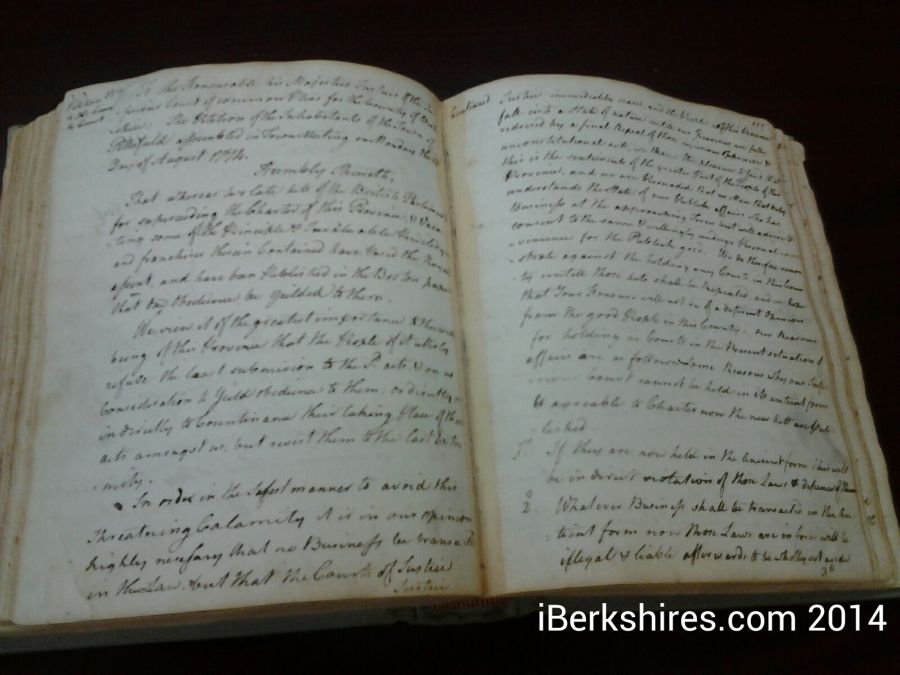 To the Honourable his Majesties Justices of the
Court of common Pleas for the County of
The Petition of the Inhabitants of the Town of
Pittsfield assembled in Town Meeting on Monday the
Day of August 1774.
Humbly Sheweth
That whereas two late acts of the British Parliament
for superceding the Charter of this Province, & vaca
ting some of the Principle & Invaluable
and franchises therein Contained have Passed the Royal
assent, and have been Published in the Boston paper
that Obedience be yeilded to them.
We view it of the greatest importance to the well
being of this Province that the People of it utterly
refuse the least submission to the Sd. acts & on no
Consideration to yeild obedience to them, or directly or
in directly to Countinance their taking Place of those
acts amongst us, but resist them to the last Extre
mity.
In order in the safest manner to avoid this
threatning Calamity it is in our opinion
highly necessary that no Business be transacted
in the Law, but that the Courts of Justice
Justice
Continued
Justice immediately cease, and the People of this Province
fall into a State of nature untill our Grievances are fully
redressed by a final Repeal of these
unconstitutional acts, we have the pleasure to find that
this is the sentiments of the greater part of the People of this
Province, and we are Perswaded that no Man that duly
understands the State of our Publick affairs who has
Business at the approaching Term but will advise &
consent to the same & willingly undergo Personal incon
venience for the Publick good. We do therefore remon
strate against the holding any Courts in this Coun
ty untill those acts shall be Repealed, and we hope
that Your Honours will not be of a different Opinion
from the good People in this County. Our Reasons
for holding no Courts in the Present situation of
affairs are as follows. Some Reasons why our Infer
riour Court cannot be held in its antient form
& agreable to Charter now the new acts are Esta
blished.
1. If they are now held in the Ancient form this will
be in direct violation of those Laws & defiance of them
2. Whatever Business shall be transacted in the An
tient form now those Laws are in force will be
illegal & liable afterwards to be wholly set aside
3d
iBerkshires.com 2014